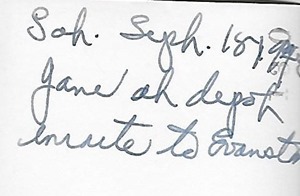 Soh. Seph. 18,
Jane oh depot
enroute to Evanst